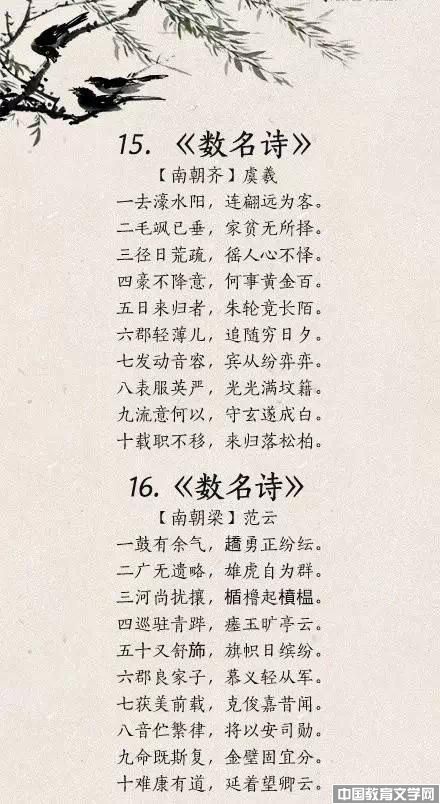 15.《数名诗》
【南朝齐】虞羲
一去濠水阳，连翩远为客。
二毛飒已垂，家贫无所择。
三径日荒疏，徭人心不怿。
四豪不降意，何事黄金百。
五日来归者，朱轮竞长陌。
六郡轻薄儿，追随穷日夕。
七发动音容，宾从纷弈弈。
八表服英严，光光满坟籍。
九流意何以，守玄遂成白。
十载职不移，来归落松柏。
16.《数名诗》
【南朝梁】范云
一鼓有余气，趫勇正纷纭。
二广无遗略，雄虎自为群。
三河尚扰攘，楯橹起槙榅。
四巡驻青跸，瘗玉旷亭云。
五十又舒斾，旗帜日缤纷。
六郡良家子，慕义轻从军。
七获美前载，克俊嘉昔闻。
八音伫繁律，将以安司勋。
九命既斯复，金璧固宜分。
十难康有道，延着望卿云。
中国教育文学网